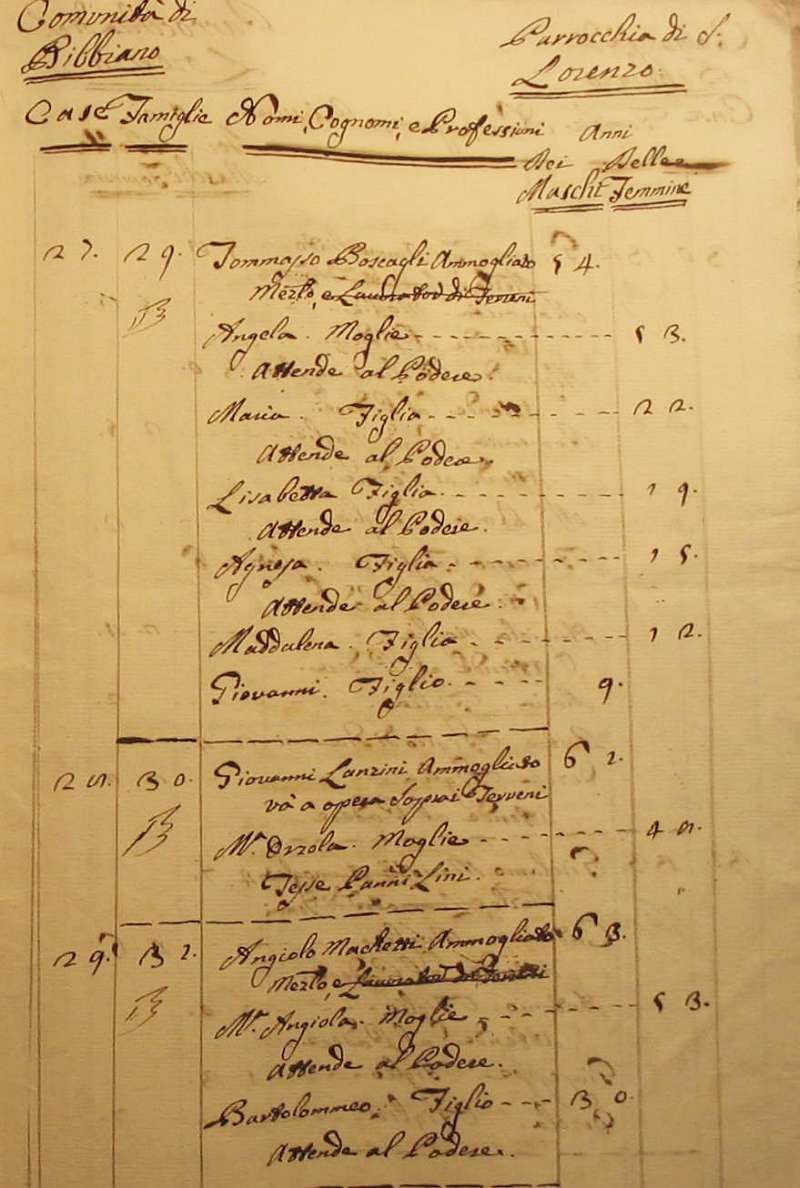 Comunità di
Bibbiano
Parrocchia di S.
Lorenzo
Case Famiglie Nomi, Cognomi, e Professioni Anni
Dei Delle
Maschi Femmine
27. 29. Tommasso Boscagli Ammogliato 54.
Merlo, e Lavorator di Terreni
Angela. Moglie 53.
Attende al Podere.
Maria. Figlia 22.
Attende al Podere.
Lisabetta Figlia 19.
Attende al Podere.
Agnesa. Figlia 15.
Attende al Podere.
Maddalena. Figlia 12.
Giovanni. Figlio. 9.
30. Giovanni Lanzini Ammogliato
và a opera Soprai Terreni
M.ª Orzola. Moglie
Tesse Panni Lini.
29. Angiolo Machetti Ammogliato 63.
Merlo, e Lavorator di Terreni
M.ª Angiola. Moglie 53.
Attende al Podere.
Bartolommeo. Figlio 30.
Attende al Podere.